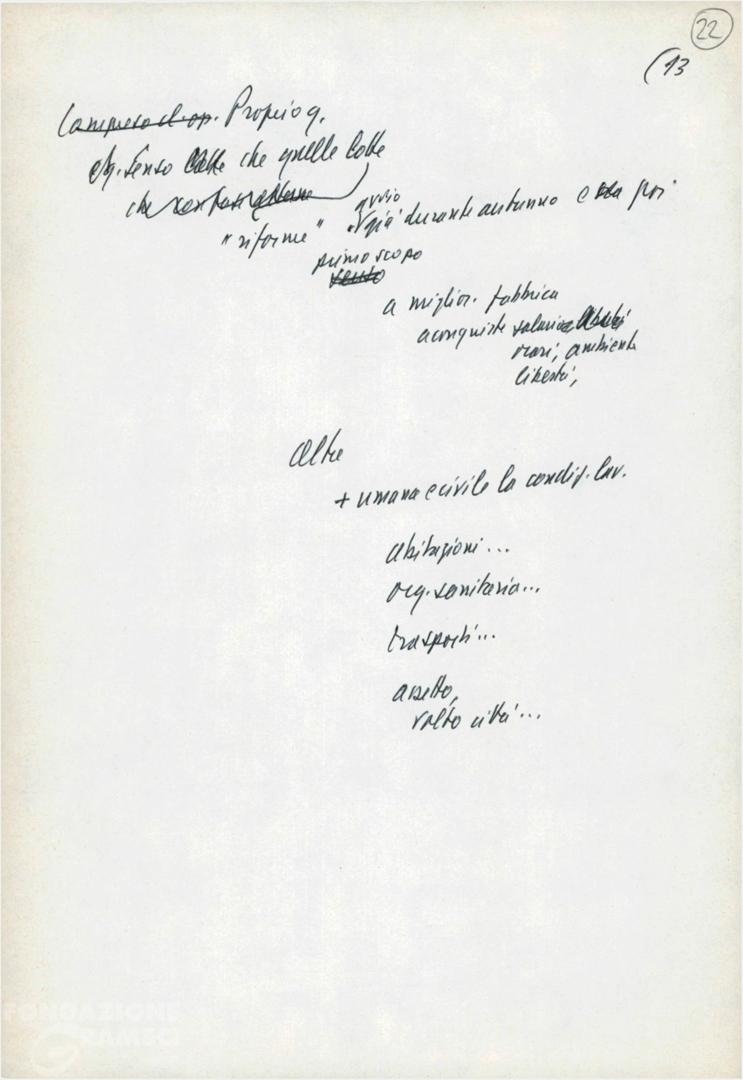 22
(13
Proprio q.
senso che quelle lotte
che
"riforme" già durante autunno e poi
primo scopo
a miglior. fabbrica
a conquiste salario
orari, ambiente
libertà,
Altre
+ umana e civile la condiz. lav.
abitazioni...
org. sanitaria...
trasporti...
assetto,
volto città...
FONDAZIONE
GRAMSCI